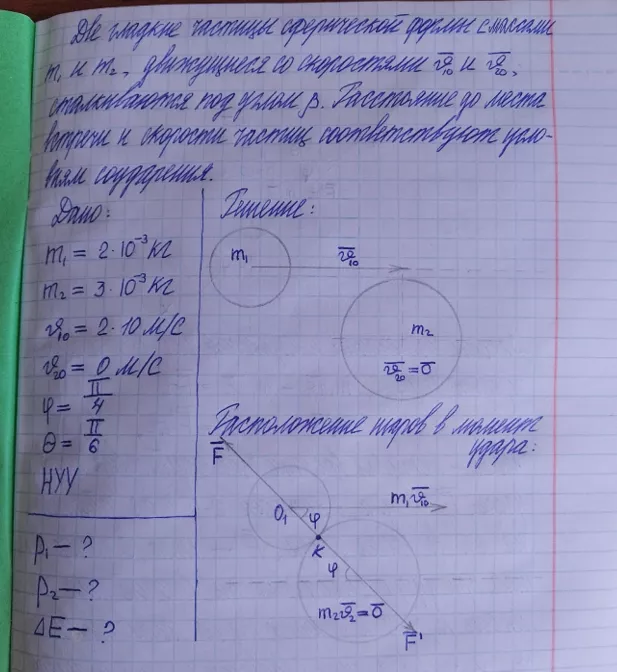 Две гладкие частицы сферической формы с массами
m₁ и m₂, движущиеся со скоростями v̅₁₀ и v̅₂₀,
сталкиваются под углом β. Расстояние до места
встречи и скорости частиц соответствуют усло-
виям соударения.
Дано:
m₁ = 2·10⁻³ кг
m₂ = 3·10⁻³ кг
v₁₀ = 2·10 м/с
v₂₀ = 0 м/с
φ = π/4
θ = π/6
НУУ
p₁ — ?
p₂ — ?
ΔE — ?
Решение:
m₁
v̅₁₀
m₂
v̅₂₀ = 0̅
Расположение шаров в момент
удара:
F̅
O₁
φ
m₁v̅₁₀
K
φ
m₂v̅₂ = 0̅
F̅'